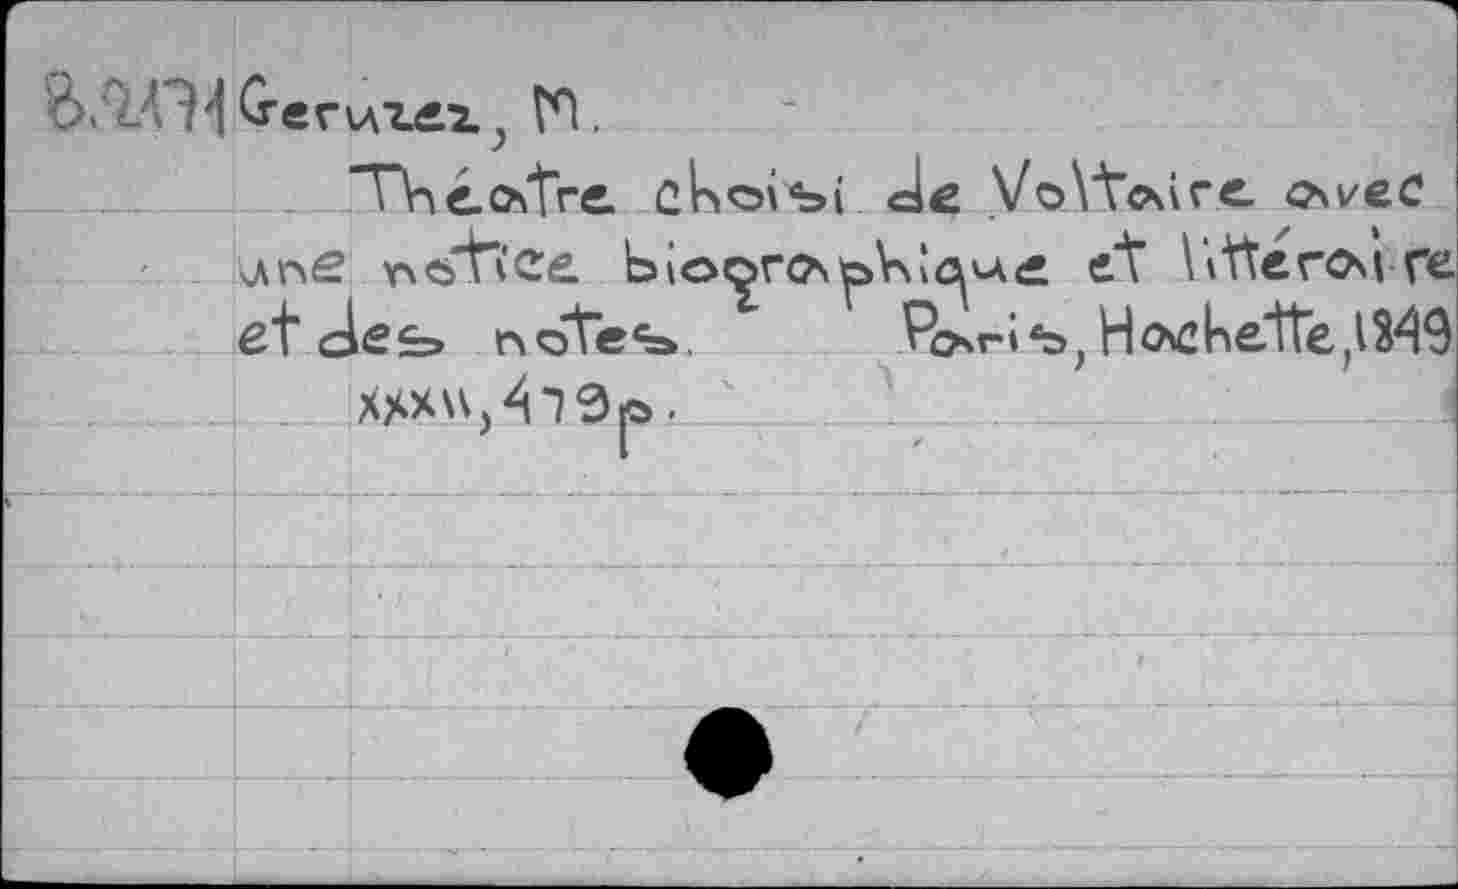 Geruzez, M.
Théatre choisi de Voltaire avec
une notice biographique et littéraire
et des notes. Paris, Hachette, 1849
xxxii, 479p.